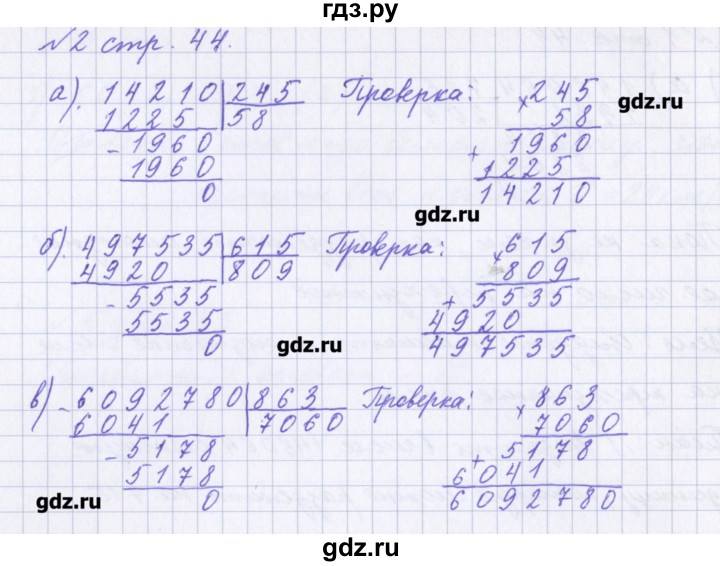 гдз.ру
№2 стр. 44.
а). 14210 | 245 Проверка: × 245
1225 | 58 58
- 1960 + 1960
1960 1225
0 14210
gdz.ru
gdz.ru
б). 497535 | 615 Проверка: × 615
4920 | 809 809
- 5535 + 5535
5535 4920
0 497535
gdz.ru
в) - 6092780 | 863 Проверка: × 863
6041 | 7060 7060
- 5178 + 5178
5178 6041
0 6092780
gdz.ru
gdz.ru
gdz.ru